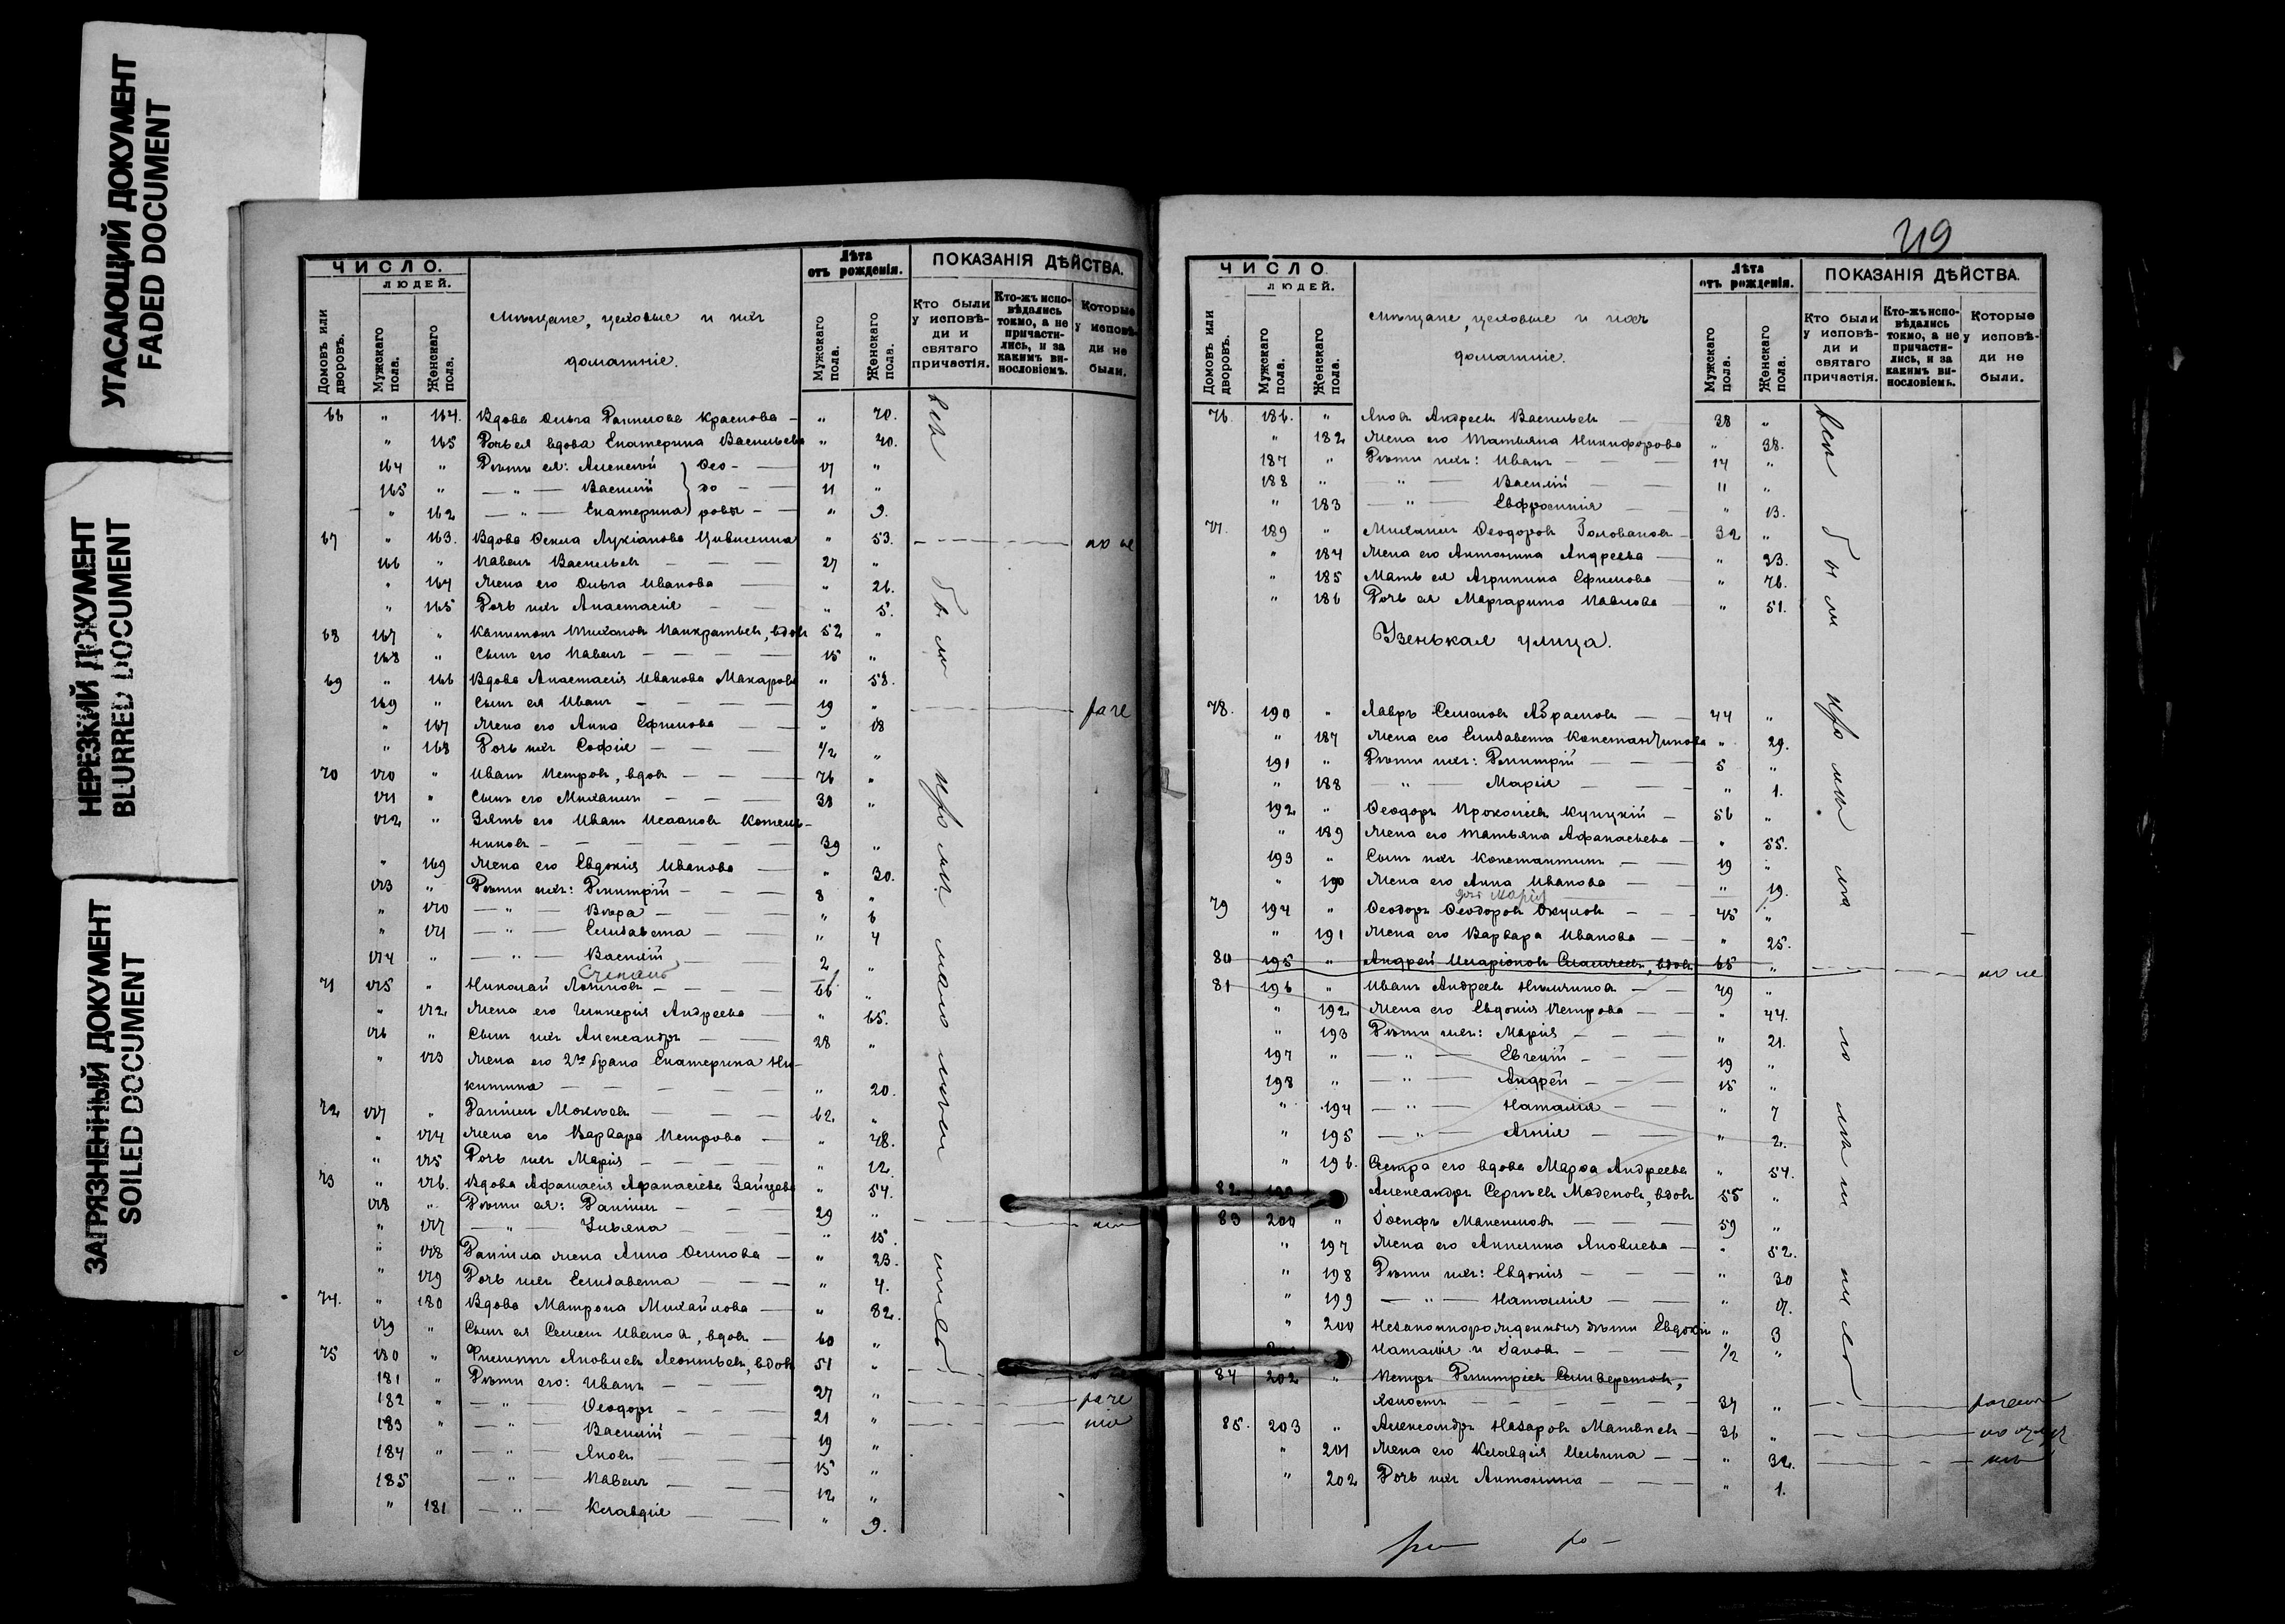 УГАСАЮЩИЙ ДОКУМЕНТ
FADED DOCUMENT
НЕРЕЗКИЙ ДОКУМЕНТ
BLURRED DOCUMENT
ЗАГРЯЗНЕННЫЙ ДОКУМЕНТ
SOILED DOCUMENT
ЧИСЛО.
ЛЮДЕЙ.
Домовъ или дворовъ.
Мужскаго пола.
Женскаго пола.
Мѣщане, цеховые и ихъ
домашніе.
Лѣта
отъ рожденія.
Мужскаго пола.
Женскаго пола.
ПОКАЗАНІЯ ДѢЙСТВА.
Кто были у исповѣди и святаго причастія.
Кто-жъ исповѣдались токмо, а не причастились, и за какимъ винословіемъ.
Которые у исповѣди не были.
66 " 164. Вдова Ольга Даниилова Краснова — " 70.
" 165 Дочь ея вдова Екатерина Васильева " 40.
164 " Дѣти ея: Алексѣй Ѳео- — 17 "
165 " — " — Василій до — 11 "
" 162 — " — Екатерина ровы — " 9.
67 " 163. Вдова Ѳекла Лукіанова " 53.
166 " Павелъ Васильевъ — 27 "
" 164 Жена его Ольга Иванова — " 26.
" 165 Дочь ихъ Анастасія — " 5.
68 167 " Капитонъ Тихоновъ Панкратьевъ, вдовъ 52 "
168 " Сынъ его Павелъ — 15 "
69 " 166 Вдова Анастасія Иванова Макарова " 58.
169 " Сынъ ея Иванъ — 19 "
" 167 Жена его Анна Ефимова — " 18
" 168 Дочь ихъ Софія — 1/2 "
70 170 " Иванъ Петровъ, вдовъ — 76 "
171 " Сынъ его Михаилъ — 38 "
172 " Зять его Иванъ Исааковъ Котель-
никовъ — 39 "
" 169 Жена его Евдокія Иванова — " 30.
173 " Дѣти ихъ: Димитрій — 8 "
" 170 — " — Вѣра — " 6
" 171 — " — Елисавета — " 4
174 " — " — Василій — 2 "
Степанъ
71 175 " Николай Логиновъ — 66 "
" 172 Жена его Гликерія Андреева — " 65.
176 " Сынъ ихъ Александръ — 28 "
" 173 Жена его 2го брака Екатерина Ни-
китина — " 20.
72 177 " Даніилъ Мокѣевъ — 62. "
" 174 Жена его Варвара Петрова — " 48.
" 175 Дочь ихъ Марія — " 12.
73 " 176. Вдова Афанасія Афанасіева Зайцева " 54.
178 " Дѣти ея: Даніилъ — 29 "
" 177 — " — Ульяна — " 15.
" 178 Даніила жена Анна Осипова — " 23.
" 179 Дочь ихъ Елисавета — " 4.
74. " 180 Вдова Матрона Михайлова — " 82.
179 " Сынъ ея Семенъ Ивановъ, вдовъ — 60 "
75 180 " Филиппъ Яковлевъ Леонтьевъ, вдовъ 51 "
181 " Дѣти его: Иванъ — 27 "
182 " — " — Ѳеодоръ — 21 "
183 " — " — Василій — 19 "
184 " — " — Яковъ — 15 "
185 " — " — Павелъ — 12 "
" 181 — " — Клавдія — " 9.
ЧИСЛО.
ЛЮДЕЙ.
Домовъ или дворовъ.
Мужскаго пола.
Женскаго пола.
Мѣщане, цеховые и ихъ
домашніе.
Лѣта
отъ рожденія.
Мужскаго пола.
Женскаго пола.
ПОКАЗАНІЯ ДѢЙСТВА.
Кто были у исповѣди и святаго причастія.
Кто-жъ исповѣдались токмо, а не причастились, и за какимъ винословіемъ.
Которые у исповѣди не были.
76. 186. " Яковъ Андреевъ Васильевъ — 38 "
" 182 Жена его Татьяна Никифорова " 38.
187 " Дѣти ихъ: Иванъ — 14 "
188 " — " — Василій — 11 "
" 183 — " — Евфросинія — " 13.
77. 189 " Михаилъ Ѳеодоровъ Головановъ — 32 "
" 184 Жена его Антонина Андреева — " 33.
" 185 Мать ея Агрипина Ефимова — " 76.
" 186 Дочь ея Маргарита Павлова — " 51.
Узенькая улица.
78. 190 " Лавръ Семеновъ Абрамовъ — 44 "
" 187 Жена его Елисавета Константинова " 29.
191 " Дѣти ихъ: Димитрій — 5 "
" 188 — " — Марія — " 1.
192 " Ѳеодоръ Прокопіевъ Купцкій — 56 "
" 189 Жена его Татьяна Афанасьева — " 55.
193 " Сынъ ихъ Константинъ — 19 "
" 190 Жена его Анна Иванова — " 19.
дочь Марія
79 194 " Ѳеодоръ Ѳеодоровъ Окуловъ — 45 "
" 191 Жена его Варвара Иванова — " 25.
80 195 " Андрей Иларіоновъ вдовъ 65 "
81 196 " Иванъ Андреевъ 49 "
" 192 Жена его Евдокія Петрова — " 44.
" 193 Дѣти ихъ: Марія — " 21.
197 " — " — Евгеній — 19 "
198 " — " — Андрей — 15 "
" 194 — " — Наталія — " 7
" 195 — " — Агнія — " 2.
" 196. Сестра его вдова Марѳа Андреева " 54.
82 Александръ Сергѣевъ Моденовъ, вдовъ 55 "
83 200 " Іосифъ Максимовъ — 59 "
" 197 Жена его Акилина Яковлева — " 52.
" 198 Дѣти ихъ: Евдокія — " 30
" 199 — " — Наталія — " 17.
" 200 Незаконнорожденныя дѣти Евдокіи " 3
Наталія и Іаковъ — 1/2 "
84 202 " Петръ Димитріевъ Селиверстовъ,
холостъ — 34 "
85. 203 " Александръ Назаровъ Матвѣевъ — 36 "
" 201 Жена его Клавдія Ильина — " 32.
" 202 Дочь ихъ Антонина — " 1.